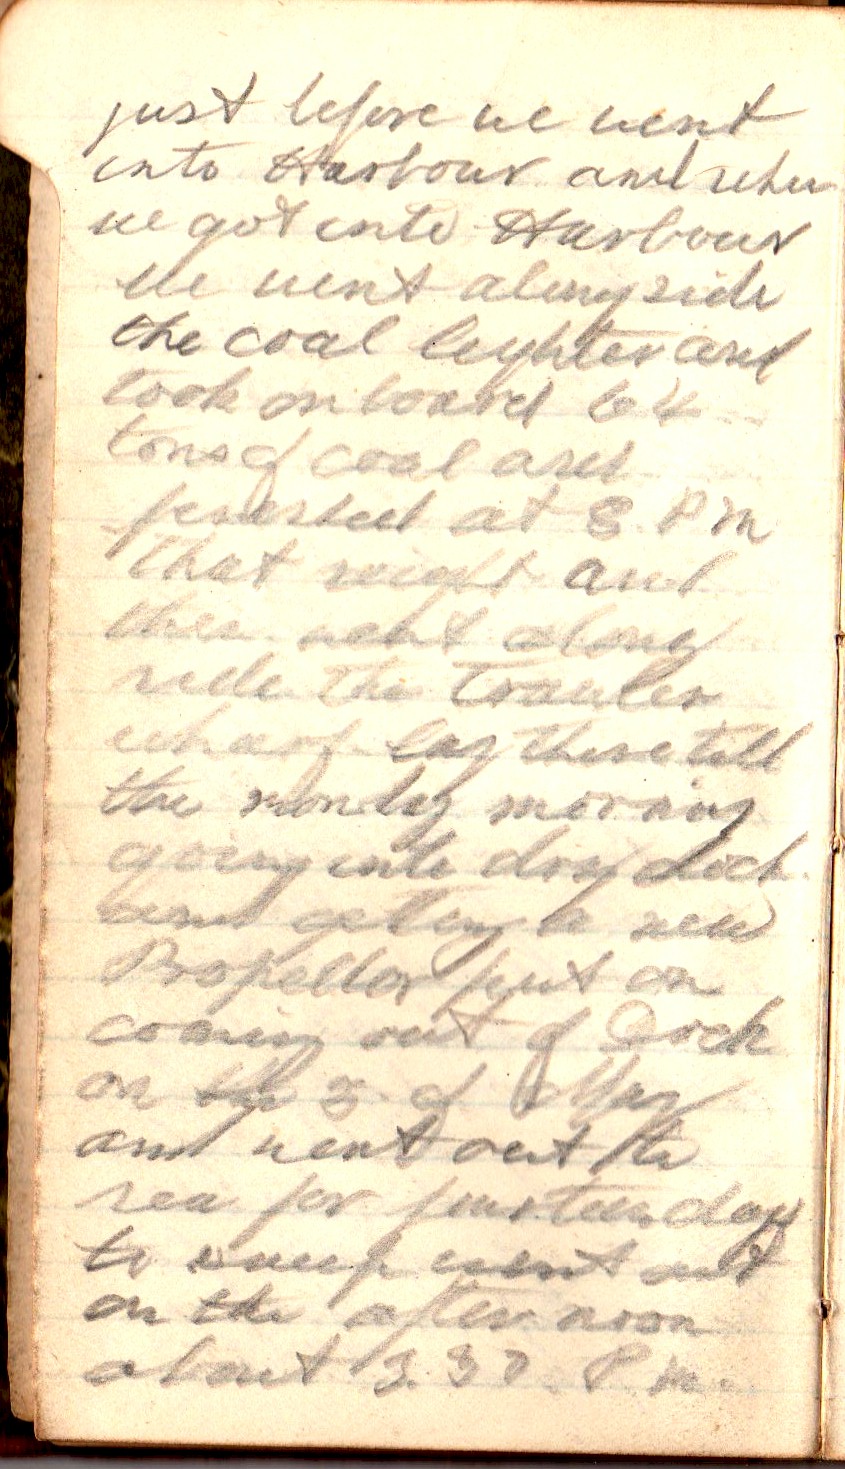 just before we went
into Harbour and when
we got into Harbour
we went alongside
the coal leighter and
took on board 64
tons of coal and
finished at 8 P m
that night and
then went along
side the Trawler
wharf lay there till
the monday morning
going into dry dock
and getting a new
Propellor put on
coming out of Dock
on the 3 of May
and went out to
sea for fourteen days
to sweep went out
on the after noon
about 3.30 P m.